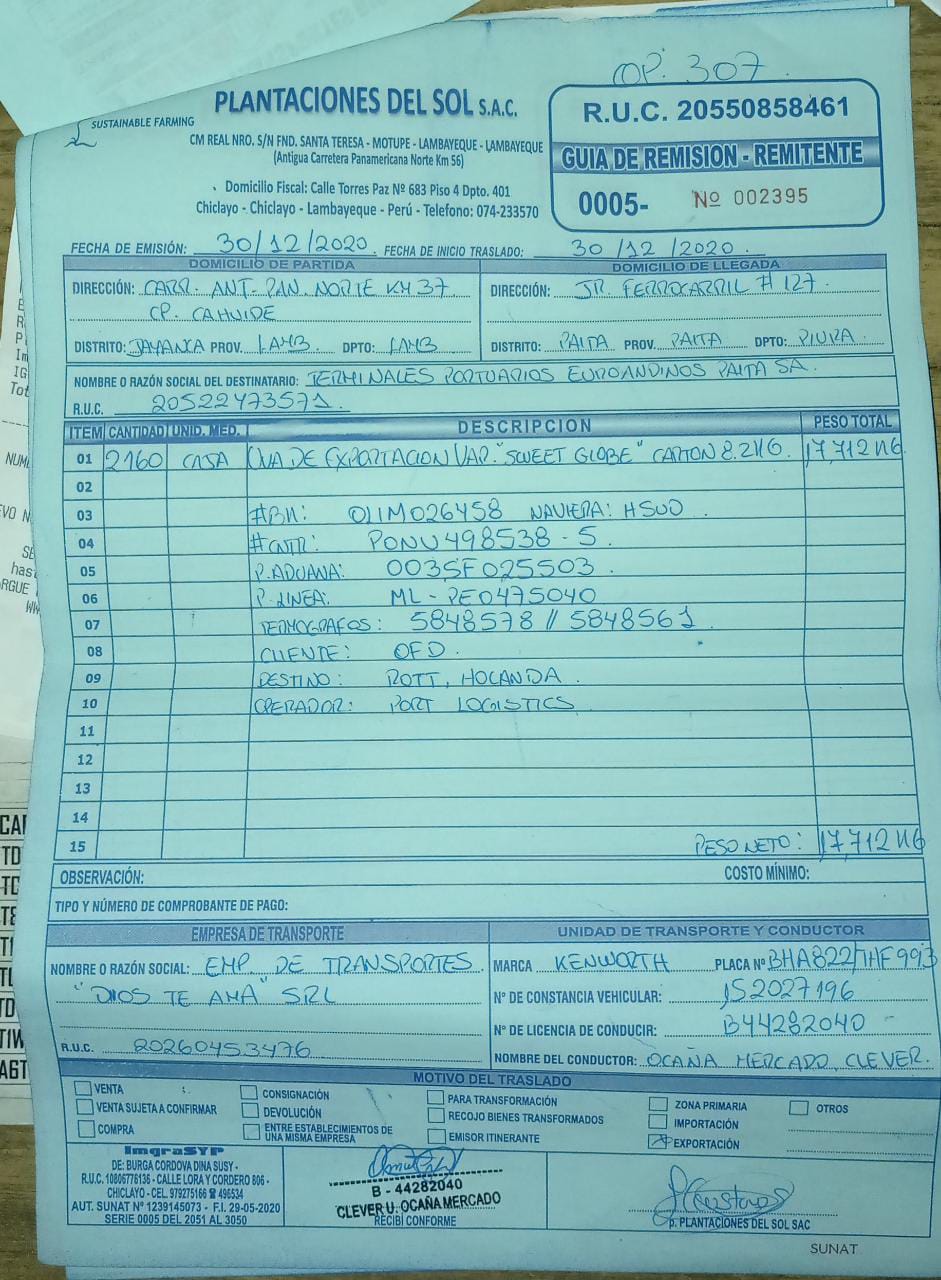 OP. 307
SUSTAINABLE FARMING
PLANTACIONES DEL SOL S.A.C.
CM REAL NRO. S/N FND. SANTA TERESA - MOTUPE - LAMBAYEQUE - LAMBAYEQUE
(Antigua Carretera Panamericana Norte Km 56)
Domicilio Fiscal: Calle Torres Paz Nº 683 Piso 4 Dpto. 401
Chiclayo - Chiclayo - Lambayeque - Perú - Telefono: 074-233570
R.U.C. 20550858461
GUIA DE REMISION - REMITENTE
0005- Nº 002395
FECHA DE EMISIÓN: 30/12/2020 FECHA DE INICIO TRASLADO: 30/12/2020.
DOMICILIO DE PARTIDA
DIRECCIÓN: CARR. ANT. PAN. NORTE KM 37
CP. CAHUIDE
DISTRITO: JAYANCA PROV. LAMB. DPTO: LAMB
DOMICILIO DE LLEGADA
DIRECCIÓN: JR. FERROCARRIL # 127.
DISTRITO: PAITA PROV. PAITA DPTO: PIURA
NOMBRE O RAZÓN SOCIAL DEL DESTINATARIO: TERMINALES PORTUARIOS EUROANDINOS PAITA SA.
R.U.C. 20522473571.
ITEM CANTIDAD UNID. MED. DESCRIPCION PESO TOTAL
01 2160 CAJA UVA DE EXPORTACION VAR. "SWEET GLOBE" CARTON 8.2KG. 17,712 KG
02
03 #BK: OLIM026458 NAVIERA: HSUD
04 #CNTR: PONU498538-5
05 P.ADUANA: 0035F025503.
06 P.LINEA: ML-PE0475040
07 TERMOGRAFOS: 5848578 // 5848561.
08 CLIENTE: OFD.
09 DESTINO: ROTT, HOLANDA.
10 OPERADOR: PORT LOGISTICS
11
12
13
14
15 PESO NETO: 17,712 KG
OBSERVACIÓN: COSTO MÍNIMO:
TIPO Y NÚMERO DE COMPROBANTE DE PAGO:
EMPRESA DE TRANSPORTE
NOMBRE O RAZÓN SOCIAL: EMP. DE TRANSPORTES
"DIOS TE AMA" SRL
R.U.C. 20260453476
UNIDAD DE TRANSPORTE Y CONDUCTOR
MARCA KENWORTH PLACA Nº BHA822/THF993
Nº DE CONSTANCIA VEHICULAR: 152027196
Nº DE LICENCIA DE CONDUCIR: B44282040
NOMBRE DEL CONDUCTOR: OCAÑA MERCADO, CLEVER.
MOTIVO DEL TRASLADO
VENTA
VENTA SUJETA A CONFIRMAR
COMPRA
CONSIGNACIÓN
DEVOLUCIÓN
ENTRE ESTABLECIMIENTOS DE
UNA MISMA EMPRESA
PARA TRANSFORMACIÓN
RECOJO BIENES TRANSFORMADOS
EMISOR ITINERANTE
ZONA PRIMARIA
IMPORTACIÓN
EXPORTACIÓN
OTROS
ImgraSYP
DE: BURGA CORDOVA DINA SUSY -
R.U.C. 10806776136 - CALLE LORA Y CORDERO 806 -
CHICLAYO - CEL. 979275166 ☎ 496534
AUT. SUNAT Nº 1239145073 - F.I. 29-05-2020
SERIE 0005 DEL 2051 AL 3050
B - 44282040
CLEVER U. OCAÑA MERCADO
RECIBI CONFORME
p. PLANTACIONES DEL SOL SAC
SUNAT